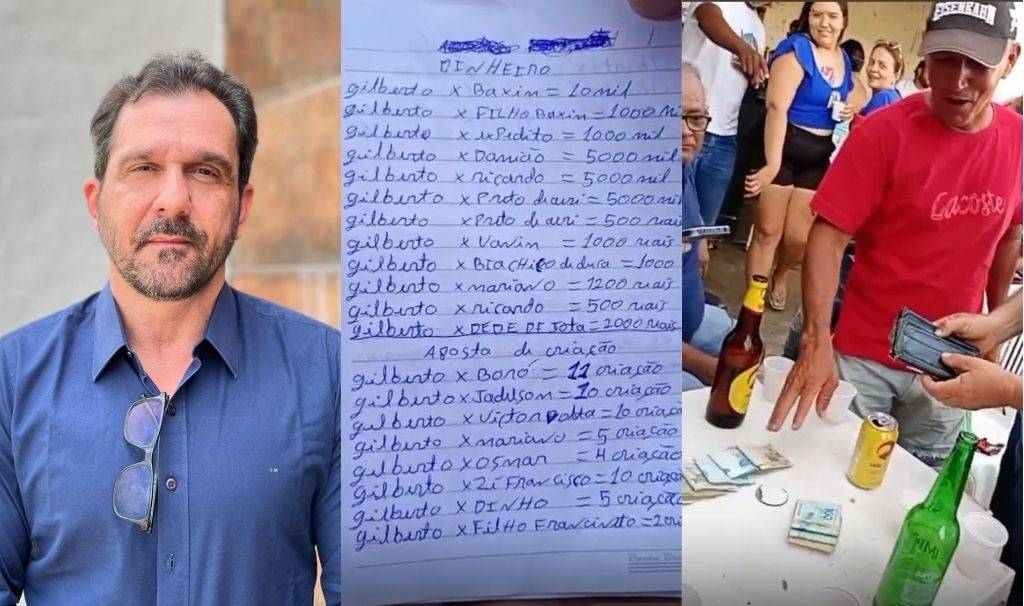 DINHEIRO
gilberto x Baxin = 10 mil
gilberto x FILHO Baxin = 1000 mil
gilberto = 1000 mil
gilberto x Damião = 5000 mil
gilberto x ricardo = 5000 mil
gilberto x Preto = 5000 mil
gilberto x Preto = 500 reais
gilberto x Vavin = 1000 reais
gilberto = 1000
gilberto x mariano = 1200 reais
gilberto x ricardo = 500 reais
gilberto x DEDE DE Jota = 2000 reais
Aposta de criação
gilberto x Boró = 11 criação
gilberto x Jadilson = 10 criação
gilberto x Victor = 10
gilberto x mariano = 5 criação
gilberto x osmar = 4 criação
gilberto x Zi Francisco = 10
gilberto x DINHO = 5
gilberto x FilHO =
EISENBAHN
Lacoste